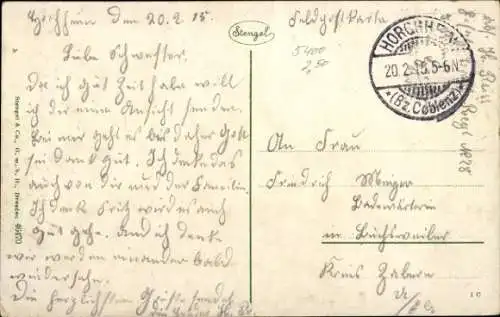 Horchheim den 20.2.15.
Liebe Schwester.
Da ich gut Zeit habe will
ich dir eine Ansicht senden.
Bei mir geht es bis daher Gott
sei dank gut. Ich denke das
auch von dir und der Familie.
Ich denke Fritz wird es auch
gut gehe. und ich denke
wir werden einander bald
wiedersehn.
Die herzlichsten Grüße sendet
Stengel
Feldpostkarte
5400
2,50
HORCHHEIM
20.2.15.5-6N.
*(Bz. Coblenz)*
An Frau
Friedrich
in Buchsweiler
Kreis Zabern
Stengel & Co., G. m. b. H., Dresden 49470